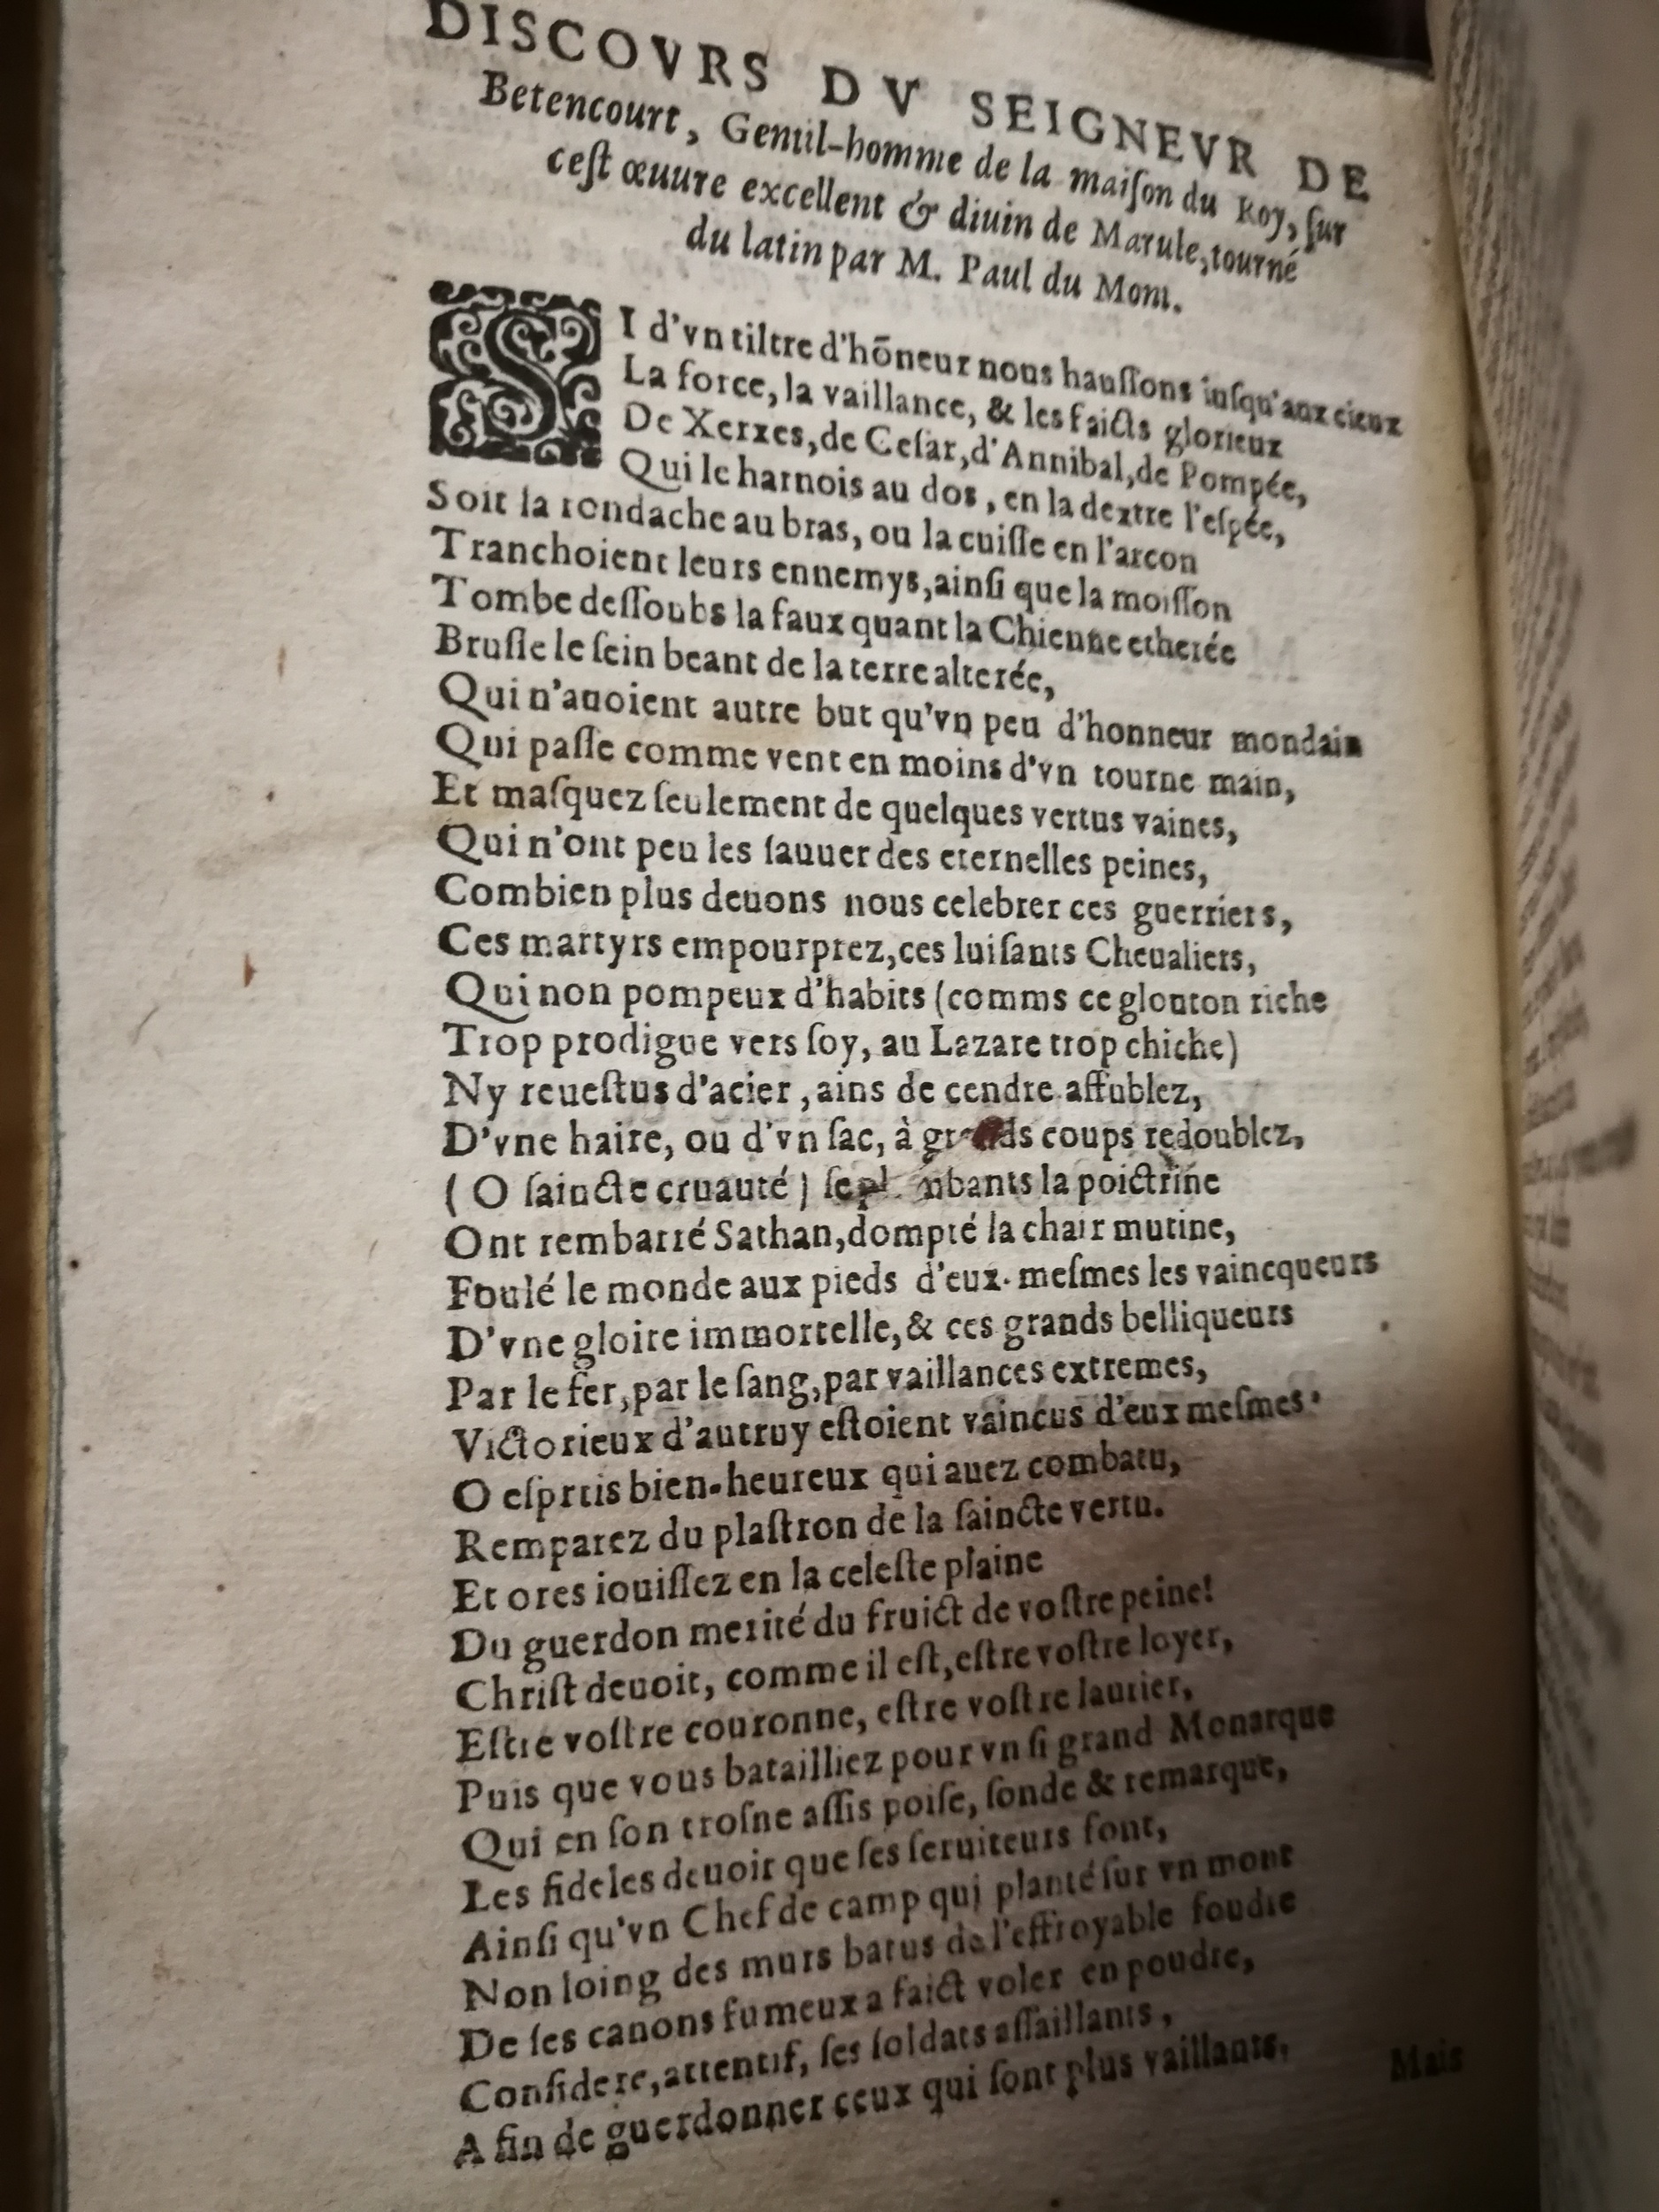 DISCOVRS DV SEIGNEVR DE
Betencourt, Gentil-homme de la maiſon du Roy, ſur
ceſt œuure excellent & diuin de Marule, tourné
du latin par M. Paul du Mont.
SI d'vn tiltre d'hōneur nous hauſſons iuſqu'aux cieux
La force, la vaillance, & les faicts glorieux
De Xerxes, de Ceſar, d'Annibal, de Pompée,
Qui le harnois au dos, en la dextre l'eſpée,
Soit la rondache au bras, ou la cuiſſe en l'arcon
Tranchoient leurs ennemys, ainſi que la moiſſon
Tombe deſſoubs la faux quant la Chienne etherée
Bruſle le ſein beant de la terre alterée,
Qui n'auoient autre but qu'vn peu d'honneur mondain
Qui paſſe comme vent en moins d'vn tourne main,
Et maſquez ſeulement de quelques vertus vaines,
Qui n'ont peu les ſauuer des eternelles peines,
Combien plus deuons nous celebrer ces guerriers,
Ces martyrs empourprez, ces luiſants Cheualiers,
Qui non pompeux d'habits (comms ce glouton riche
Trop prodigue vers ſoy, au Lazare trop chiche)
Ny reueſtus d'acier, ains de cendre affublez,
D'vne haire, ou d'vn ſac, à grands coups redoublez,
(O ſaincte cruauté) ſe la poictrine
Ont rembarré Sathan, dompté la chair mutine,
Foulé le monde aux pieds d'eux-meſmes les vaincqueurs
D'vne gloire immortelle, & ces grands belliqueurs
Par le fer, par le ſang, par vaillances extremes,
Victorieux d'autruy eſtoient vaincus d'eux meſmes.
O eſprtis bien-heureux qui auez combatu,
Remparez du plaſtron de la ſaincte vertu.
Et ores iouiſſez en la celeſte plaine
Du guerdon merité du fruict de voſtre peine!
Chriſt deuoit, comme il eſt, eſtre voſtre loyer,
Eſtre voſtre couronne, eſtre voſtre laurier,
Puis que vous batailliez pour vn ſi grand Monarque
Qui en ſon troſne aſſis poiſe, ſonde & remarque,
Les fideles deuoir que ſes ſeruiteurs font,
Ainſi qu'vn Chef de camp qui planté ſur vn mont
Non loing des murs batus de l'effroyable foudre
De ſes canons fumeux a faict voler en poudre,
Conſidere, attentif, ſes ſoldats aſſaillants,
A fin de guerdonner ceux qui ſont plus vaillants.
Mais